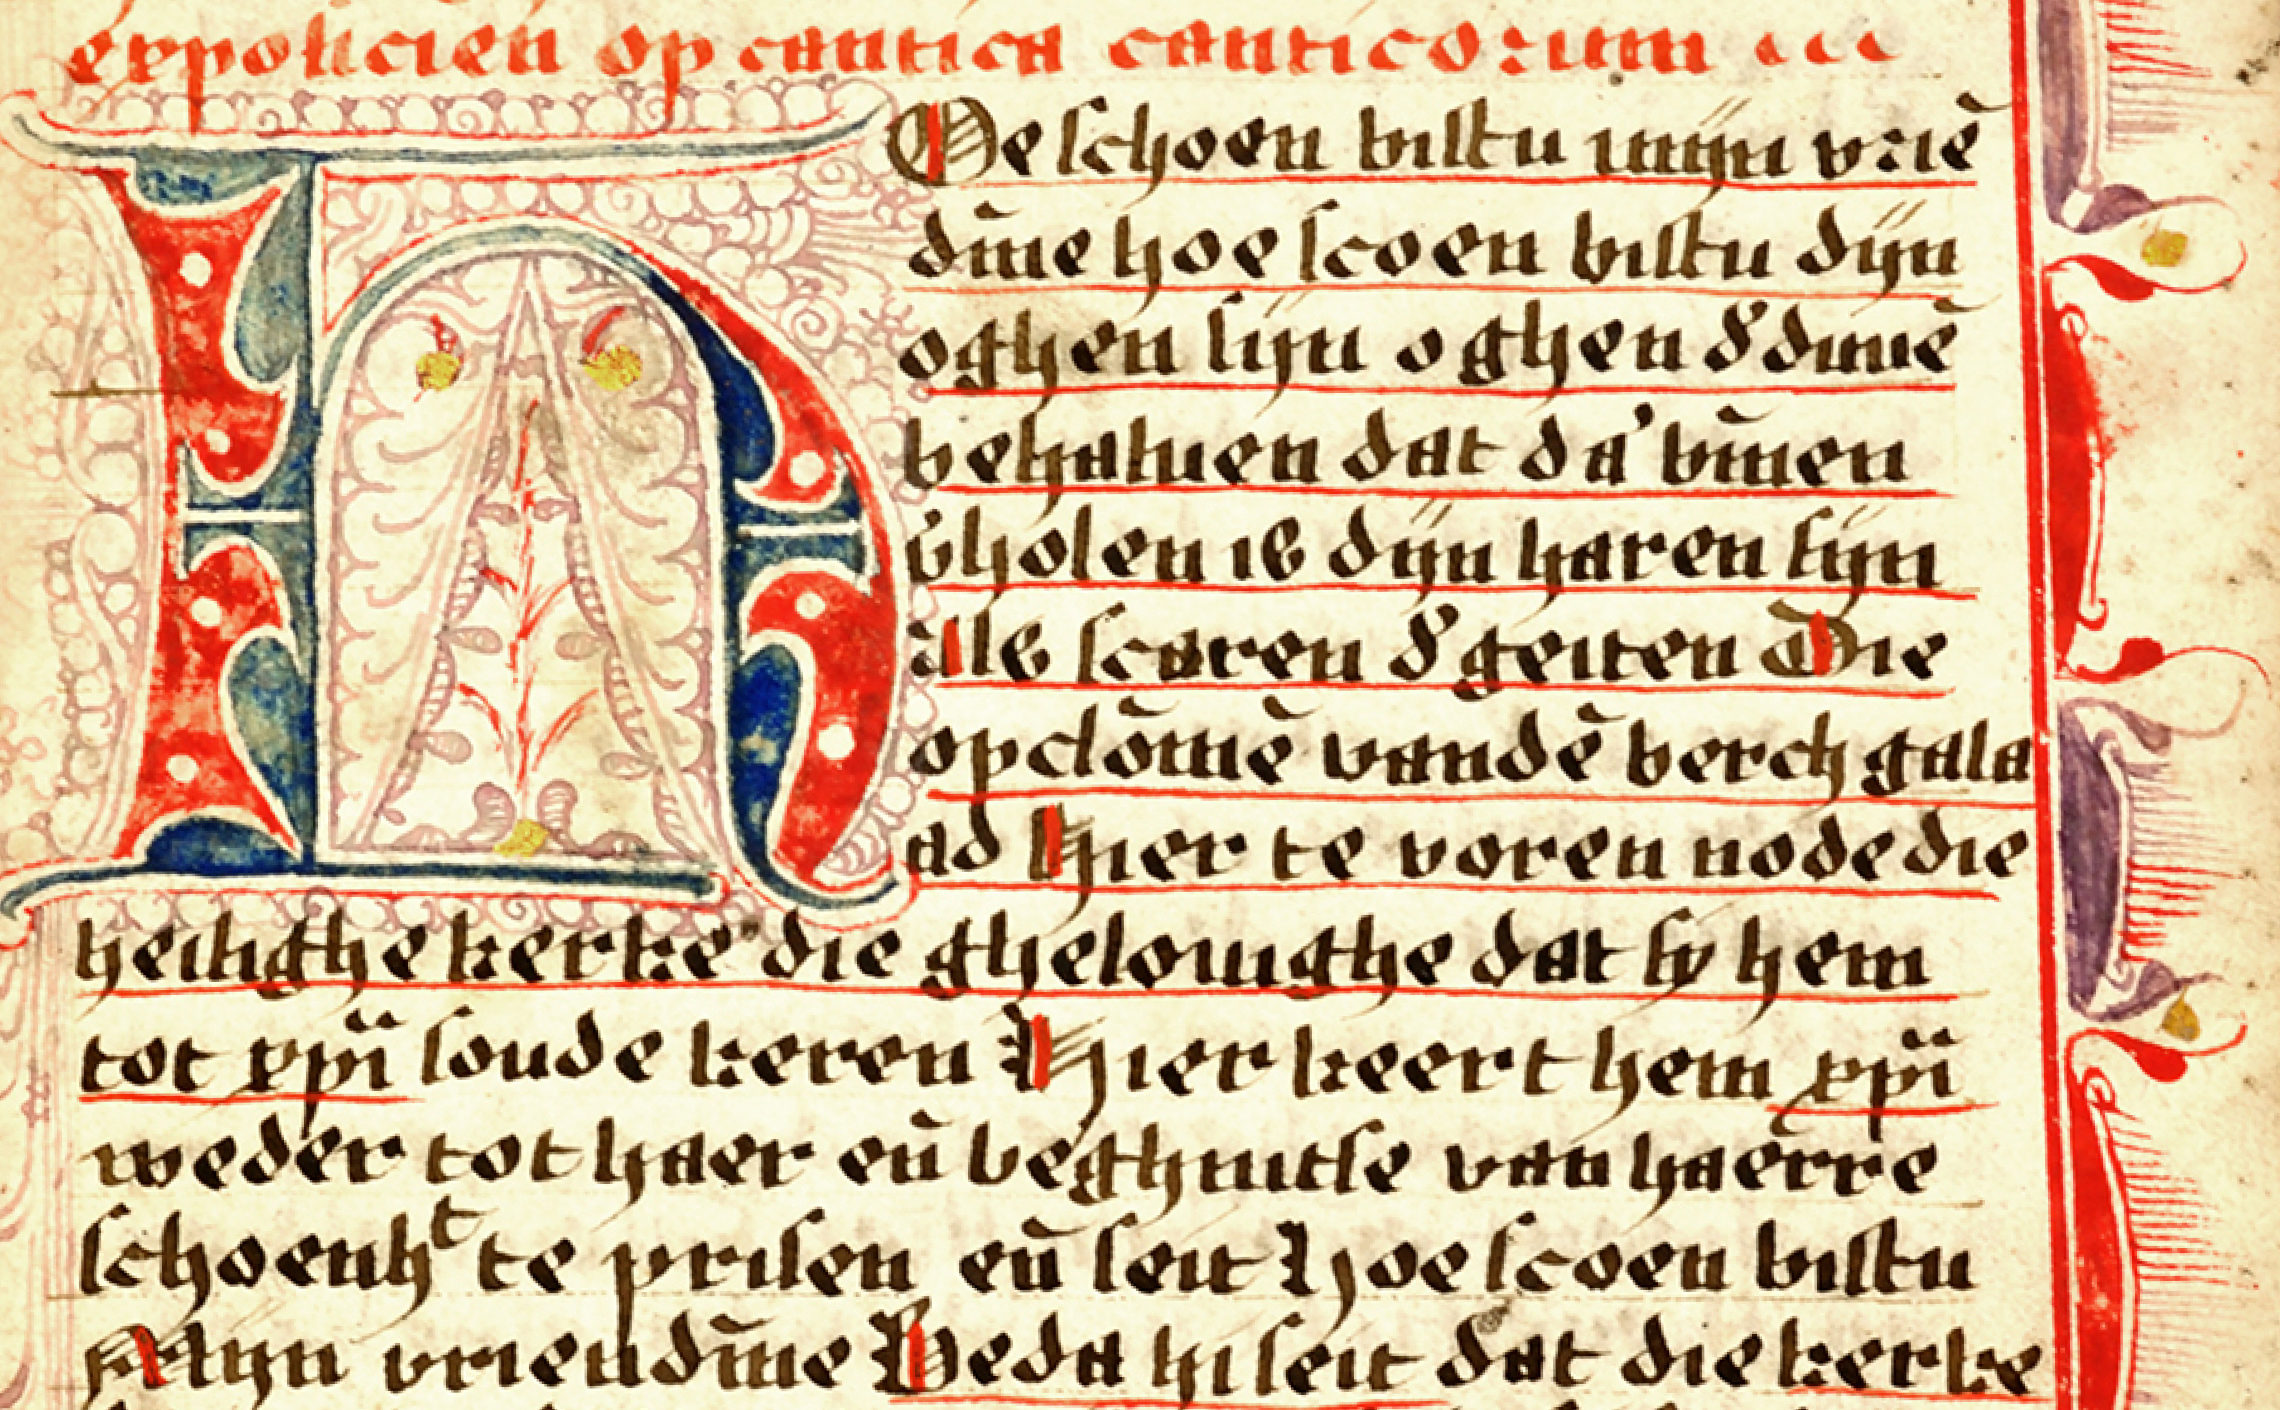 expolicien op cantica canticorum
HOe schoen bistu mijn vriē
dīne hoe scoen bistu dijn
oghen sijn oghen d'duuē
behaluen dat da' bīnen
v'holen is dijn haren sijn
als scaren d'geiten Die
opclōmē vandē berch gala
ad Hier te voren node die
heilighe kerke die ghelouighe dat sy hem
tot xpī soude keren Hier keert hem xpī
weder tot haer eñ beghintse van haerre
schoenhᵗ te prisen eñ seit Hoe scoen bistu
Mijn vriendīne Beda hi seit dat die kerke